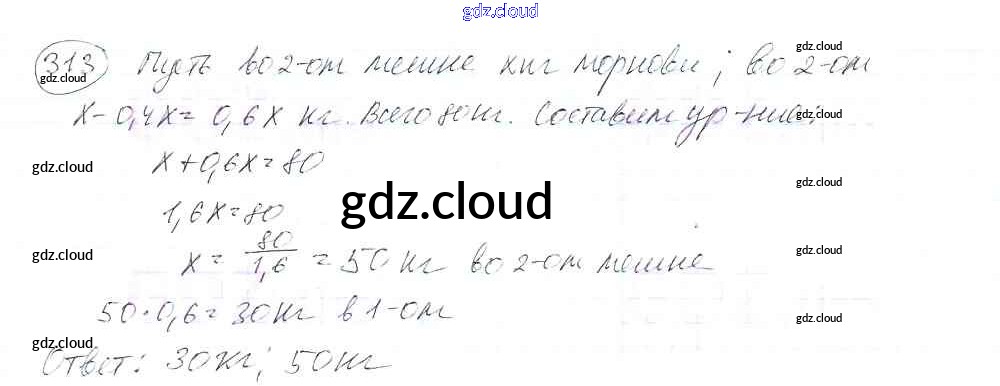 gdz.cloud
313 Пусть во 2-ом мешке x кг моркови; во 2-ом gdz.cloud
gdz.cloud
x - 0,4x = 0,6x кг. Всего 80 кг. Составим ур-ние: gdz.cloud
gdz.cloud x + 0,6x = 80 gdz.cloud
1,6x = 80 gdz.cloud
gdz.cloud x = 80/1,6 = 50 кг во 2-ом мешке gdz.cloud
50 · 0,6 = 30 кг в 1-ом gdz.cloud
gdz.cloud
Ответ: 30 кг; 50 кг